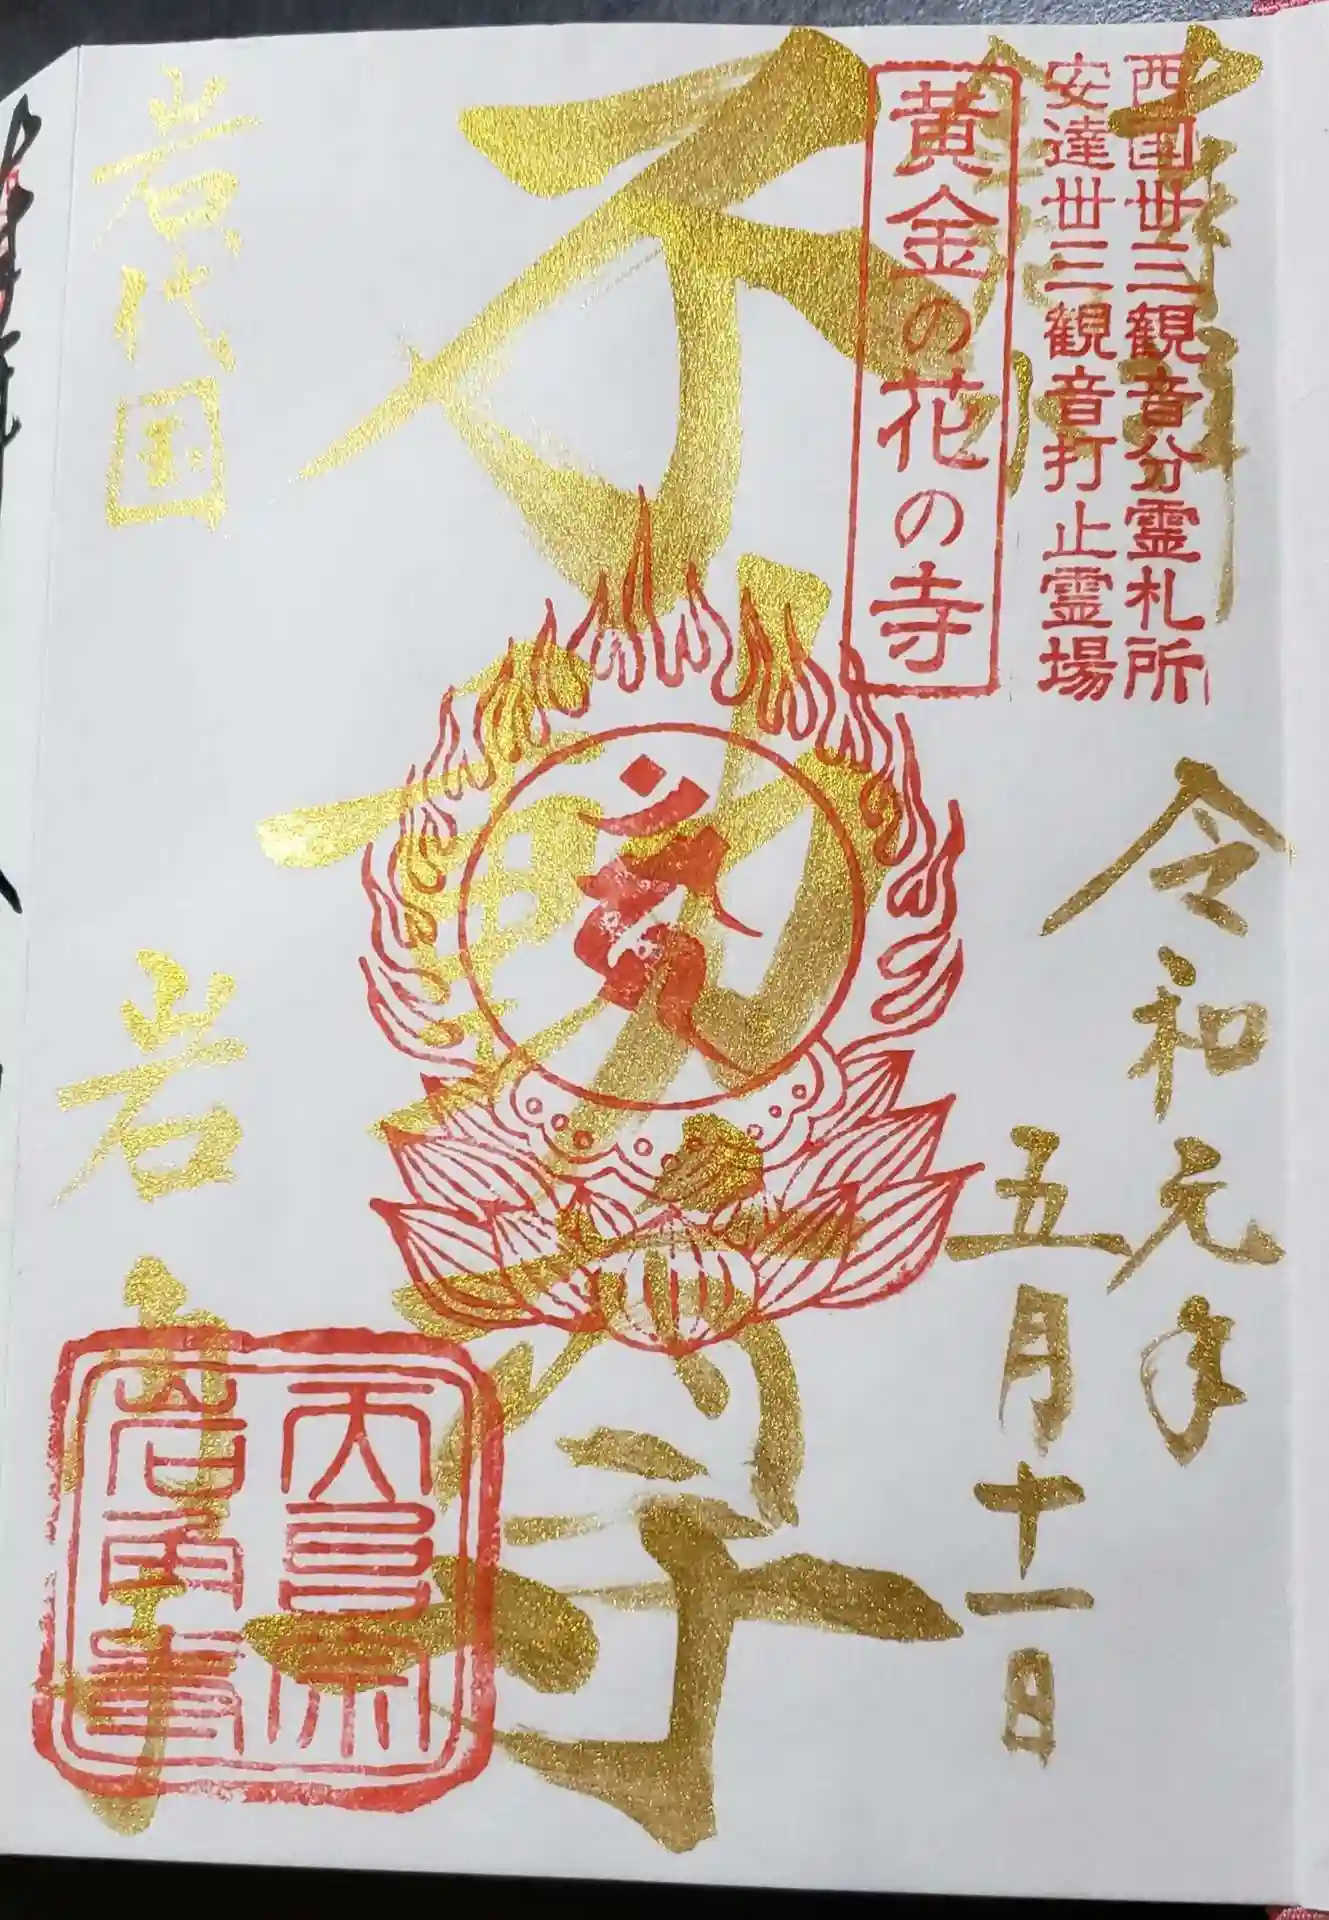 奉拝
西国卅三観音分霊札所
安達卅三観音打止霊場
令和元年
五月十一日
黄金の花の寺
不動尊
岩代国
岩角寺